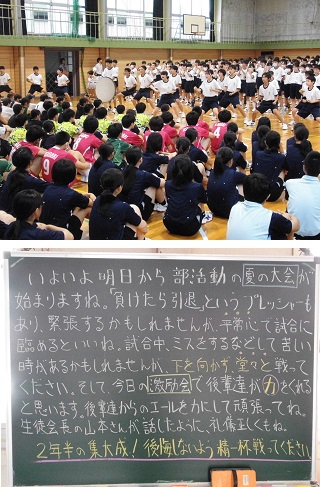 9
4
いよいよ明日から部活動の夏の大会が
始まりますね。「負けたら引退」というプレッシャーも
あり、緊張するかもしれませんが、平常心で試合に
臨めるといいね。試合中、ミスをするなどして苦しい
時があるかもしれませんが、下を向かず、堂々と戦って
ください。そして今日の激励会で後輩達が力をくれる
と思います。後輩達からのエールを力にして頑張ってね。
生徒会長の山本さんが話したように、礼儀正しくもね。
2年半の集大成！後悔しないよう精一杯戦ってください